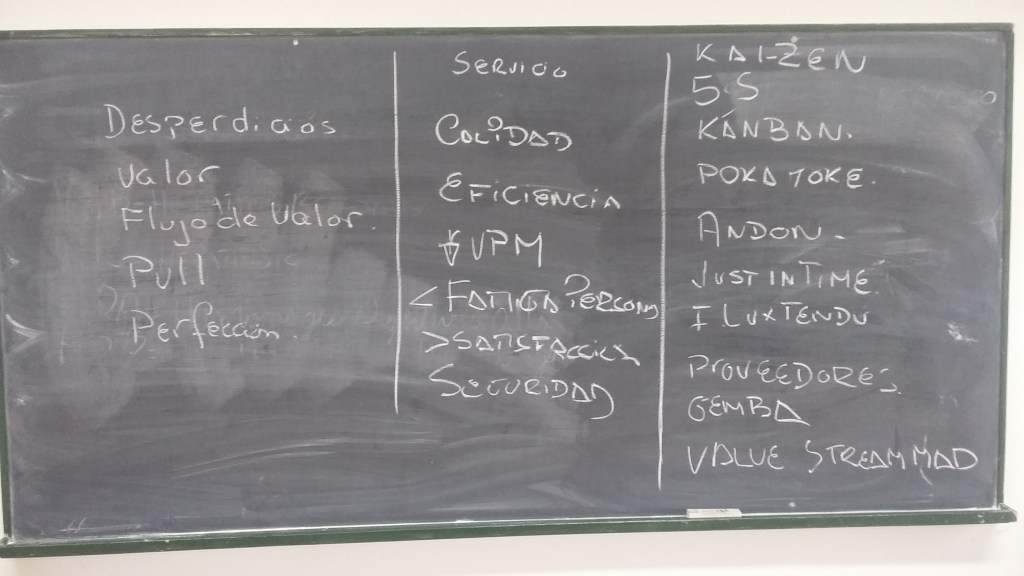 Desperdicios
Valor
Flujo de Valor.
Pull
Perfección.
SERVICIO
CALIDAD
EFICIENCIA
↓ VPM
< FATIGA PERSONA
> SATISFACCIÓN
SEGURIDAD
KAI-ZEN
5S
KANBAN.
POKA YOKE.
ANDON.
JUST IN TIME.
FLUX TENDU
PROVEEDORES.
GEMBA
VALUE STREAM MAP